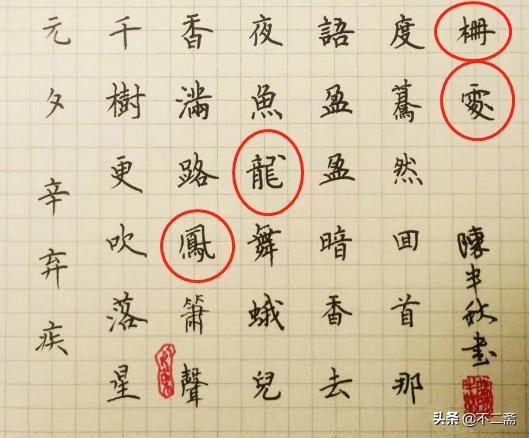 元夕 辛弃疾
千樹更吹落星
香滿路鳳簫聲
夜魚龍舞蛾兒
語盈盈暗香去
度驀然回首那
柵處
陳半秋書
头条 @不二斋